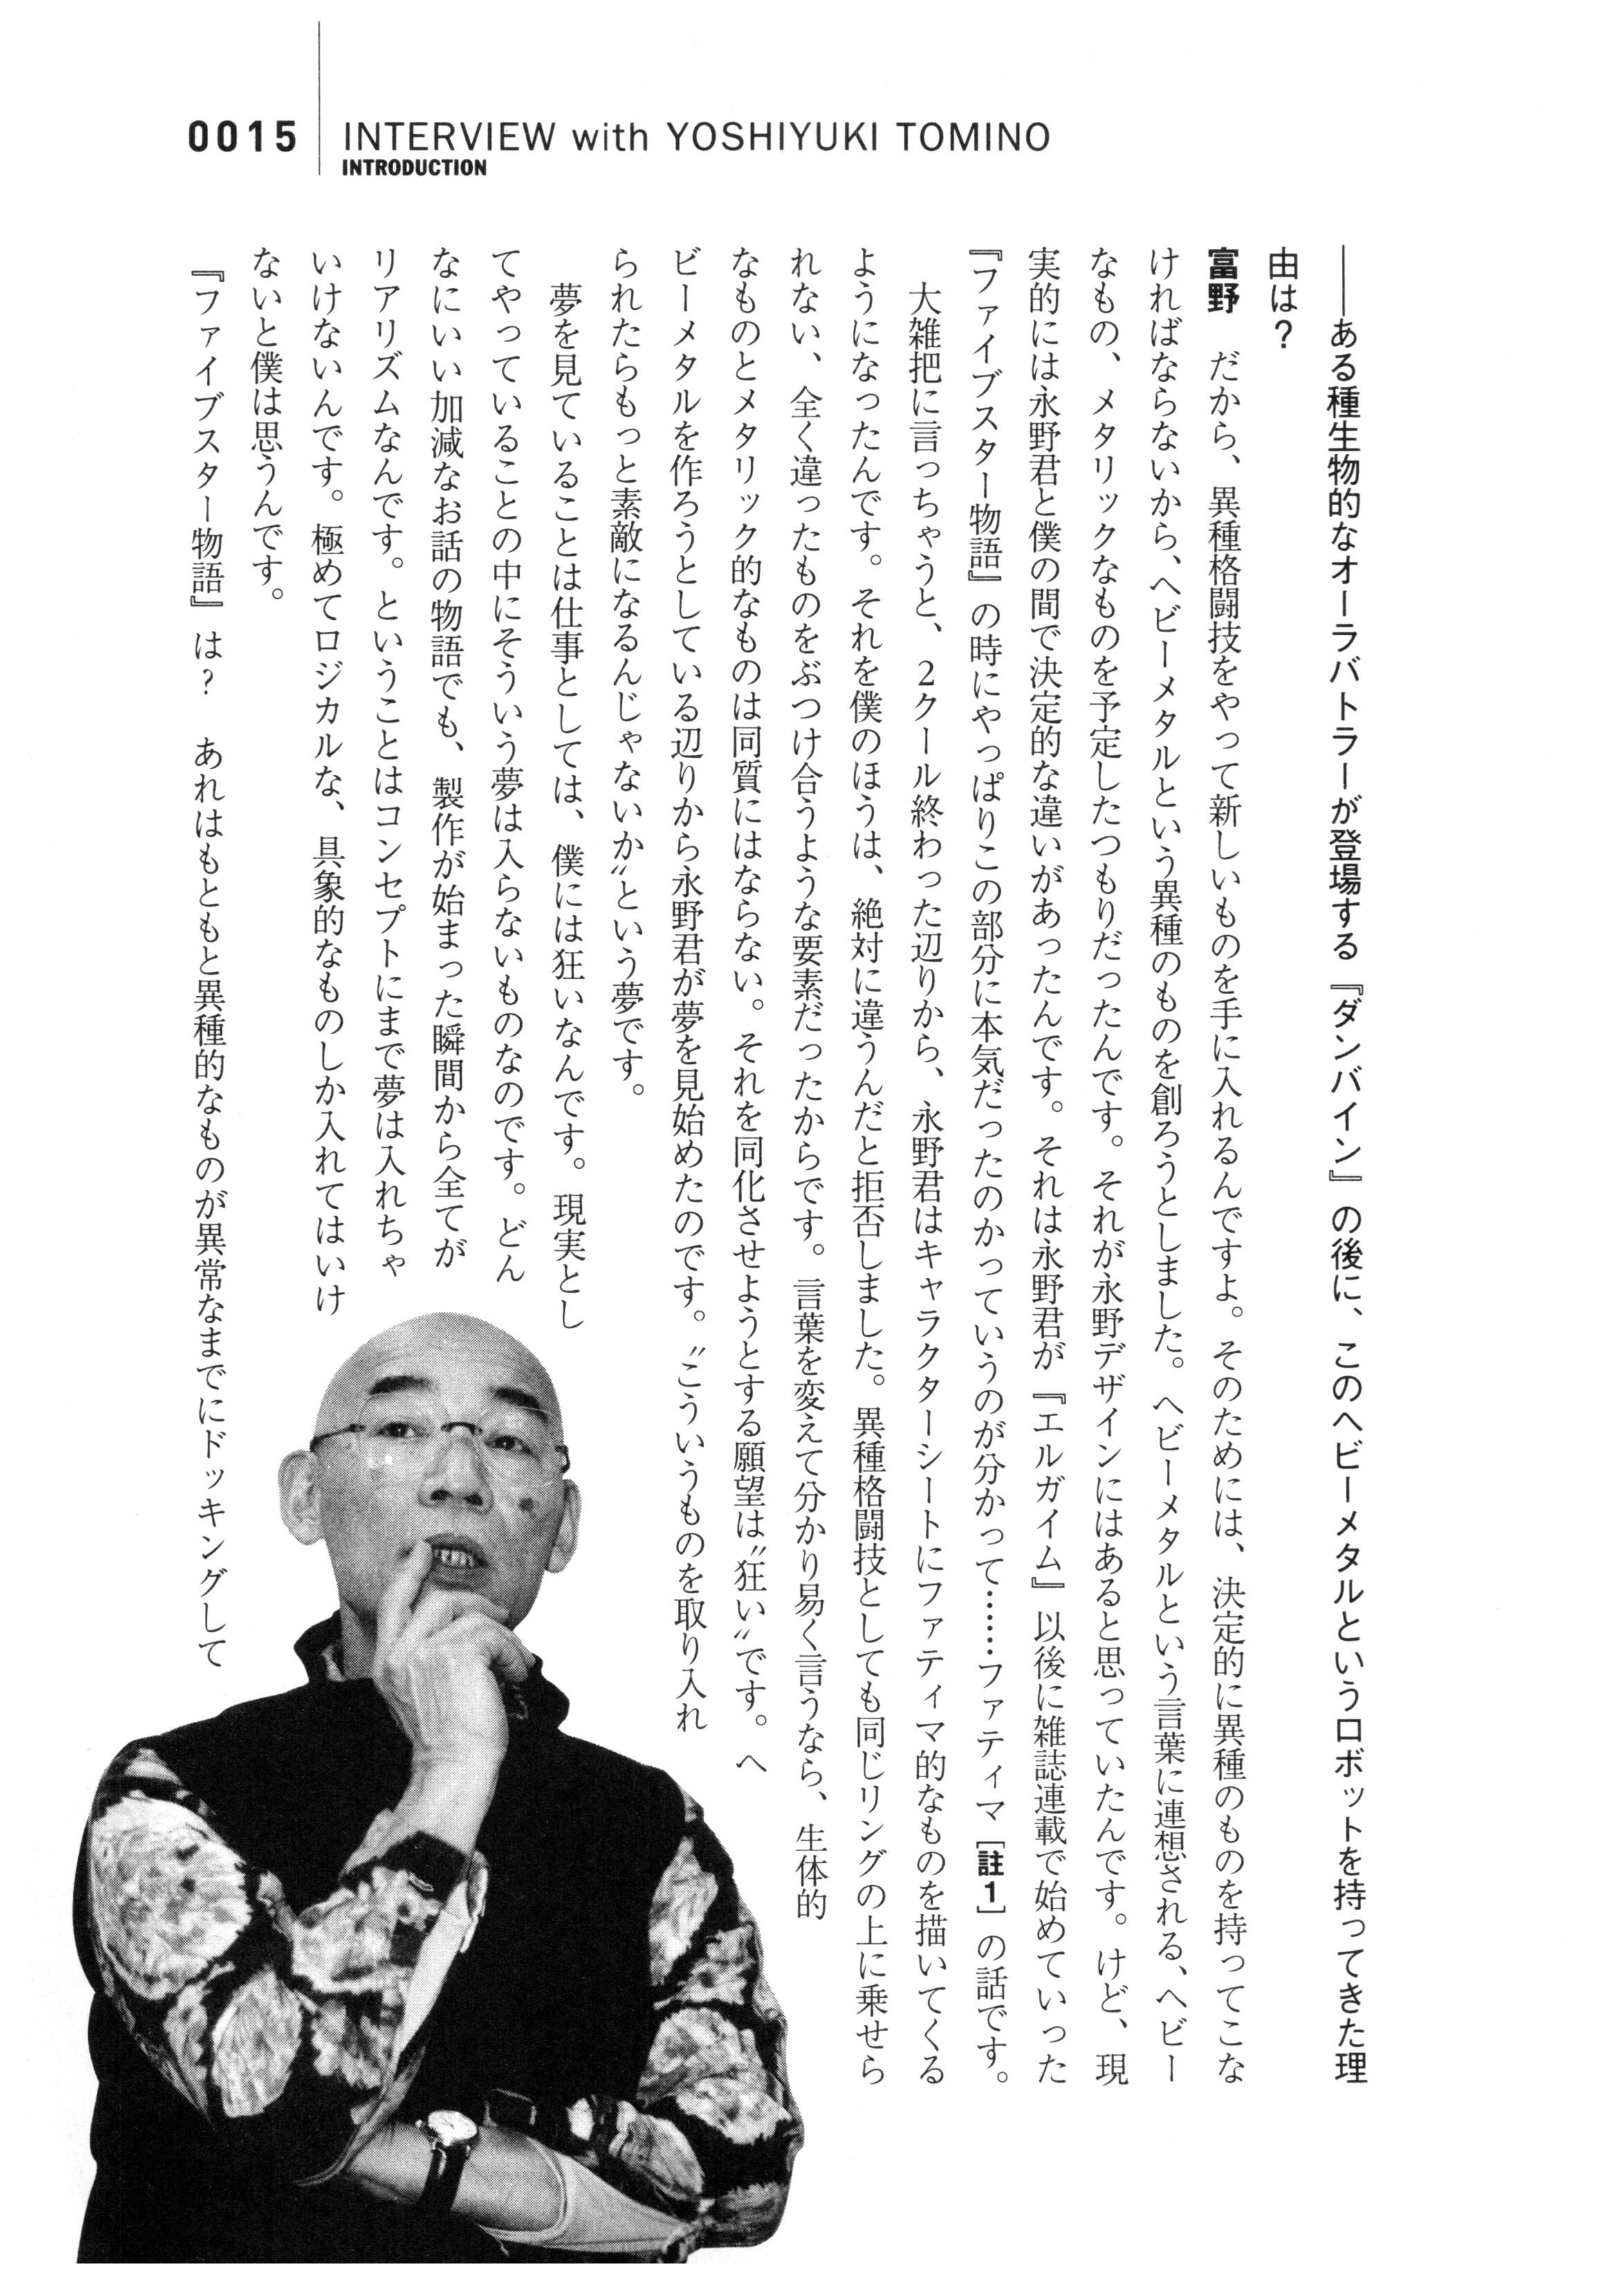 0015
INTERVIEW with YOSHIYUKI TOMINO
INTRODUCTION
――ある種生物的なオーラバトラーが登場する『ダンバイン』の後に、このヘビーメタルというロボットを持ってきた理
由は？
富野　だから、異種格闘技をやって新しいものを手に入れるんですよ。そのためには、決定的に異種のものを持ってこな
ければならないから、ヘビーメタルという異種のものを創ろうとしました。ヘビーメタルという言葉に連想される、ヘビー
なもの、メタリックなものを予定したつもりだったんです。それが永野デザインにはあると思っていたんです。けど、現
実的には永野君と僕の間で決定的な違いがあったんです。それは永野君が『エルガイム』以後に雑誌連載で始めていった
『ファイブスター物語』の時にやっぱりこの部分に本気だったのかっていうのが分かって……ファティマ［註1］の話です。
　大雑把に言っちゃうと、2クール終わった辺りから、永野君はキャラクターシートにファティマ的なものを描いてくる
ようになったんです。それを僕のほうは、絶対に違うんだと拒否しました。異種格闘技としても同じリングの上に乗せら
れない、全く違ったものをぶつけ合うような要素だったからです。言葉を変えて分かり易く言うなら、生体的
なものとメタリック的なものは同質にはならない。それを同化させようとする願望は〝狂い〟です。ヘ
ビーメタルを作ろうとしている辺りから永野君が夢を見始めたのです。〝こういうものを取り入れ
られたらもっと素敵になるんじゃないか〟という夢です。
　夢を見ていることは仕事としては、僕には狂いなんです。現実とし
てやっていることの中にそういう夢は入らないものなのです。どん
なにいい加減なお話の物語でも、製作が始まった瞬間から全てが
リアリズムなんです。ということはコンセプトにまで夢は入れちゃ
いけないんです。極めてロジカルな、具象的なものしか入れてはいけ
ないと僕は思うんです。
『ファイブスター物語』は？　あれはもともと異種的なものが異常なまでにドッキングして